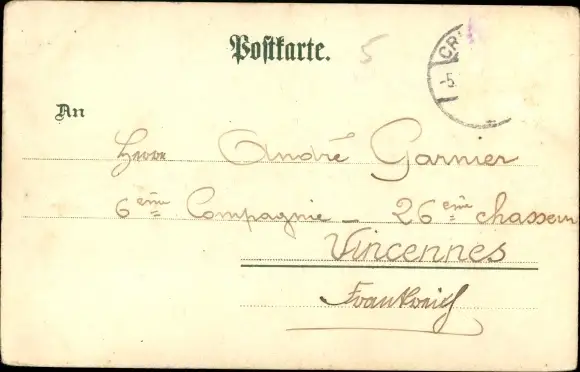 Postkarte.
5
CR
-5.
An
Herrn André Garnier
6ème Compagnie - 26ème chasseurs
Vincennes
Frankreich